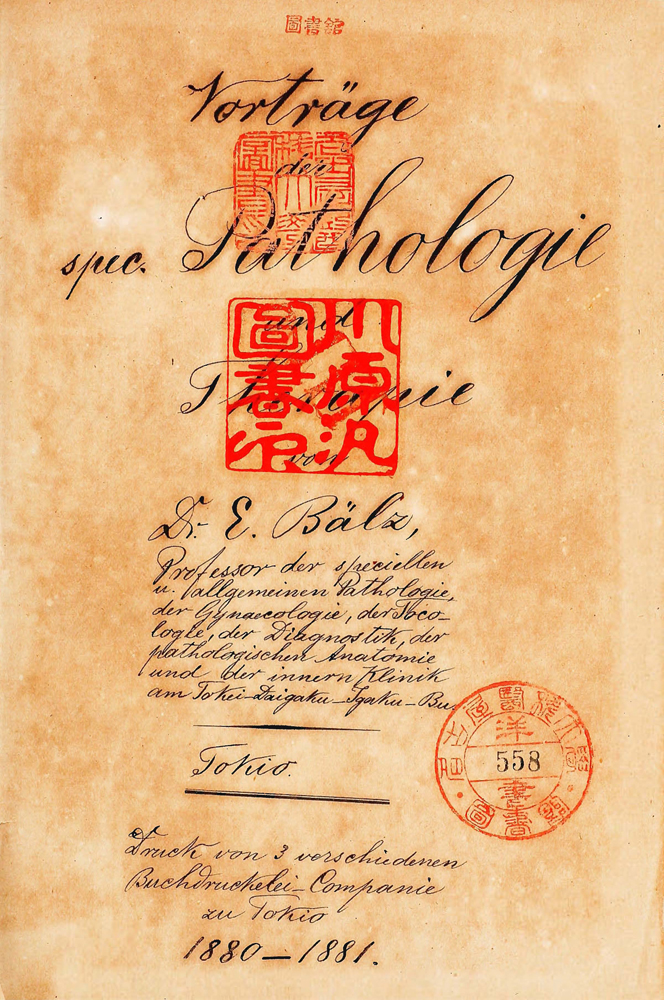 圖書館
Vorträge
der
spec. Pathologie
und
Therapie
von
川原汎
圖書印
Dr. E. Bälz,
Professor der speciellen
u. allgemeinen Pathologie,
der Gynaecologie, der Toco-
logie, der Diagnostik, der
pathologischen Anatomie
und der innern Klinik
am Tokei-Daigaku-Igaku-Bu.
Tokio.
洋書
558
Druck von 3 verschiedenen
Buchdruckelei-Companie
zu Tokio
1880—1881.